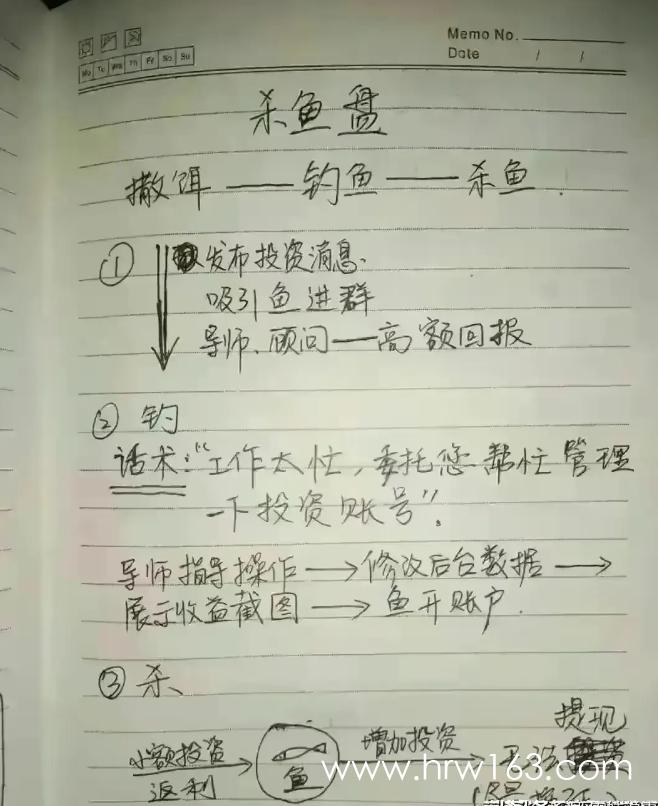 Memo No.
Date / /
Mo Tu We Th Fr Sa Su
杀鱼盘
撒饵——钓鱼——杀鱼.
① 发布投资消息.
吸引鱼进群
导师、顾问——高额回报
② 钓
话术:“工作太忙,委托您帮忙管理
一下投资账号”.
导师指导操作→修改后台数据→
展示收益截图→鱼开账户.
③ 杀
小额投资 返利 → 鱼 增加投资 → 无法 提现
www.hrw163.com